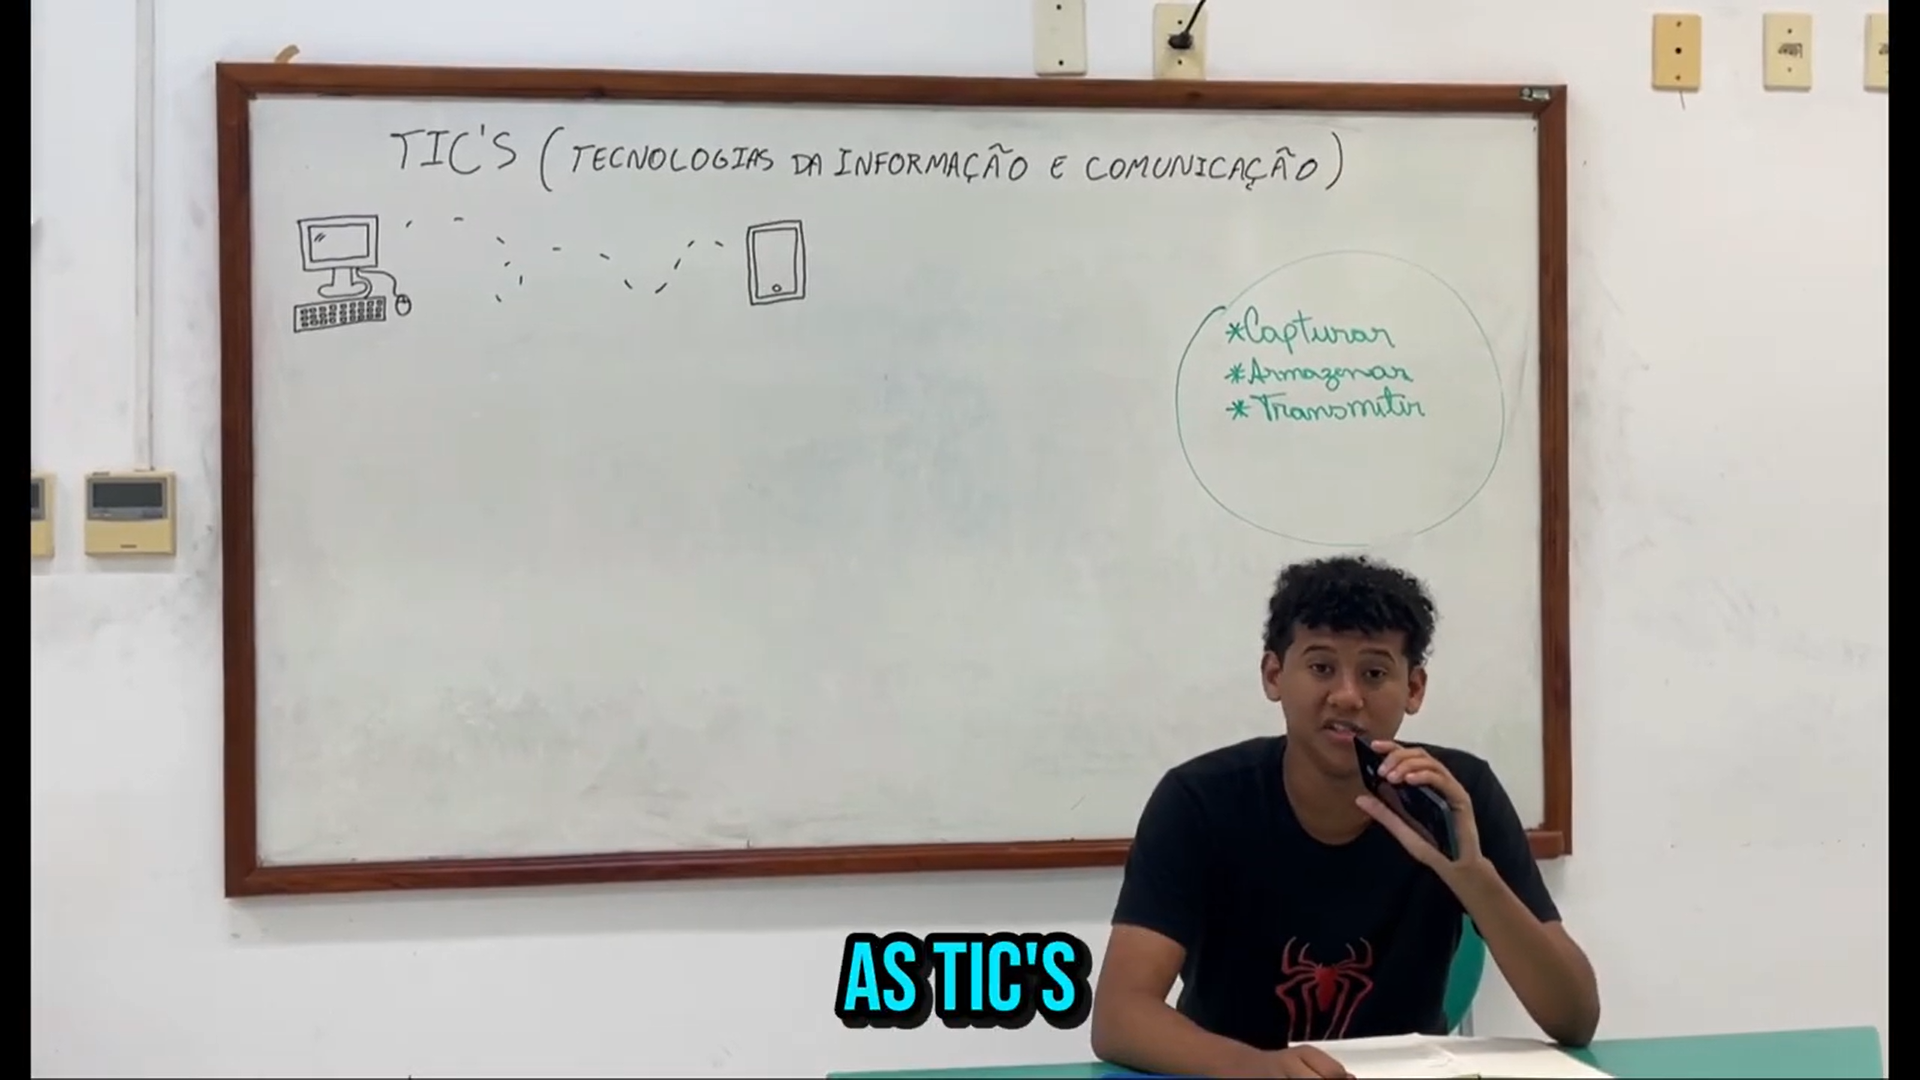 TIC'S (TECNOLOGIAS DA INFORMAÇÃO E COMUNICAÇÃO)
*Capturar
*Armazenar
*Transmitir
AS TIC'S